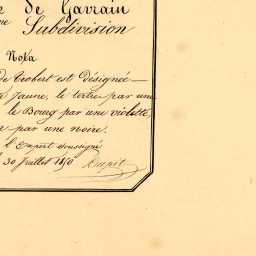 de Gavrain
me Subdivision
Nota
de Trobert est désignée
jaune, le tertre par une
le Bourg par une violette,
par une noire.
l'Expert soussigné
30 Juillet 1850